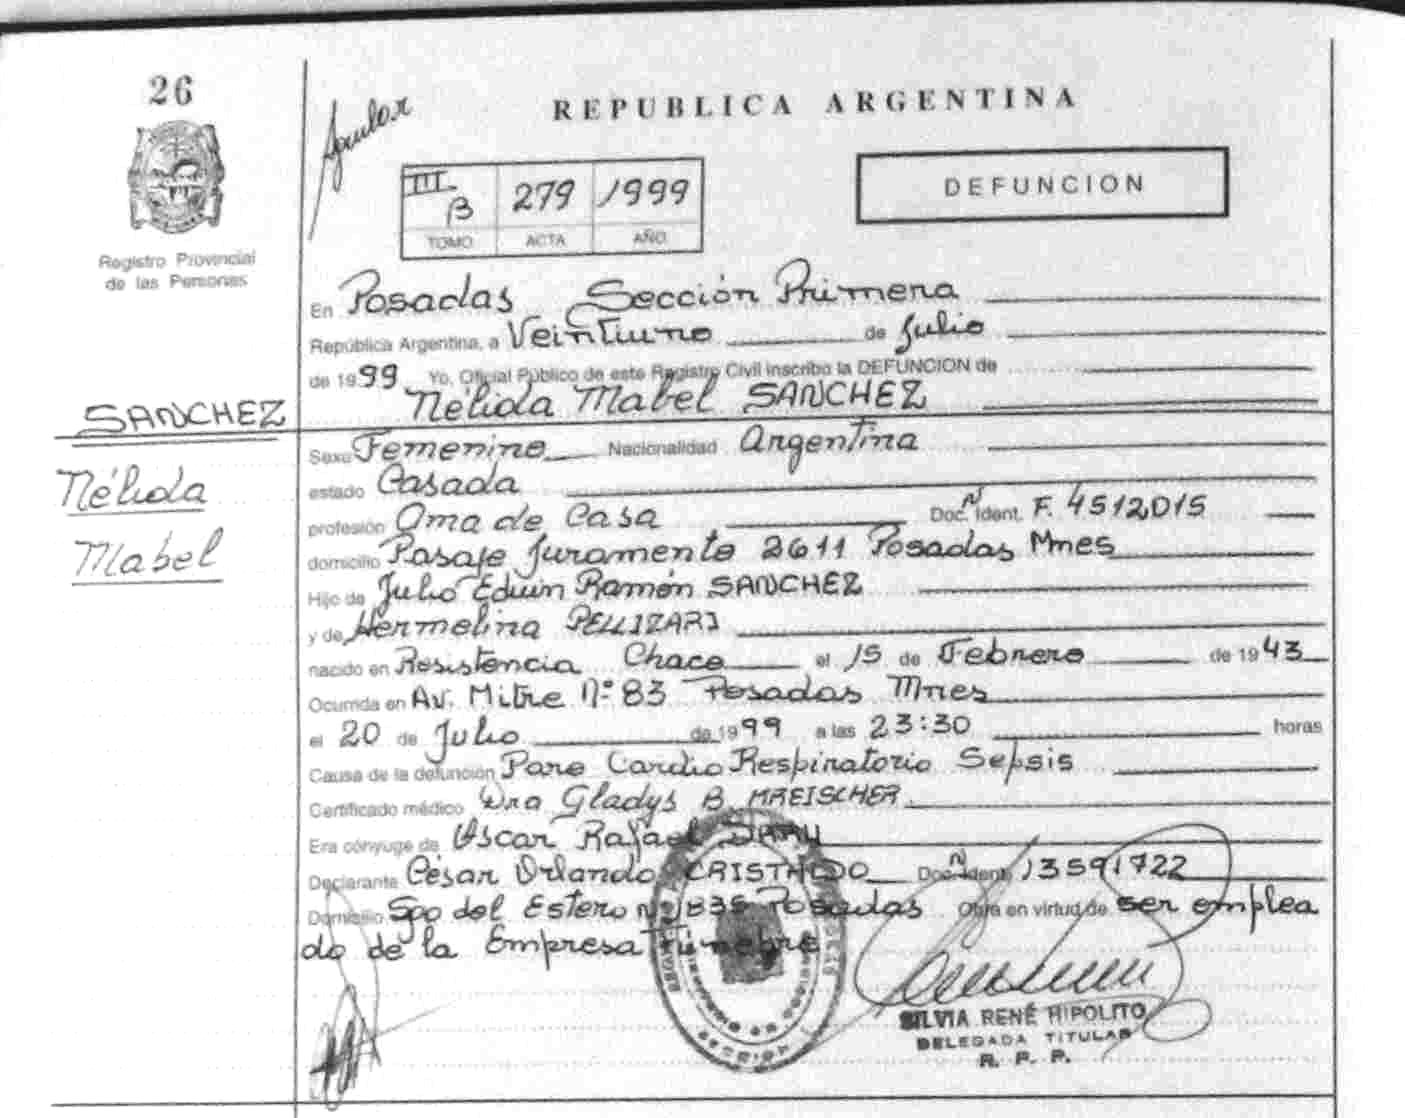 26
REPUBLICA ARGENTINA
III B 279 1999
TOMO ACTA AÑO
DEFUNCION
Registro Provincial
de las Personas
En Posadas Sección Primera
República Argentina, a Veintiuno de Julio
de 1999 Yo, Oficial Público de este Registro Civil inscribo la DEFUNCION de
Nélida Mabel SANCHEZ
SANCHEZ
Nélida
Mabel
Sexo Femenino Nacionalidad Argentina
estado Casada
profesión Ama de Casa Doc. Nº Ident. F. 4512015
domicilio Pasaje Juramento 2611 Posadas Mnes
Hijo de Julio Eduin Ramón SANCHEZ
y de Hermelina PELLIZARI
nacido en Resistencia Chaco el 15 de Febrero de 1943
Ocurrida en Av. Mitre Nº 83 Posadas Mnes
el 20 de Julio de 1999 a las 23:30 horas
Causa de la defunción Paro Cardio Respiratorio Sepsis
Certificado médico Dra Gladys B. MREISCHER
Era cónyuge de Oscar Rafael
Declarante César Orlando CRISTALDO Doc. Nº Ident. 13591722
Domicilio Sgo del Estero Nº 835 Posadas Obra en virtud de ser emplea
do de la Empresa Fúnebre
SILVIA RENÉ HIPOLITO
DELEGADA TITULAR
R. P. P.